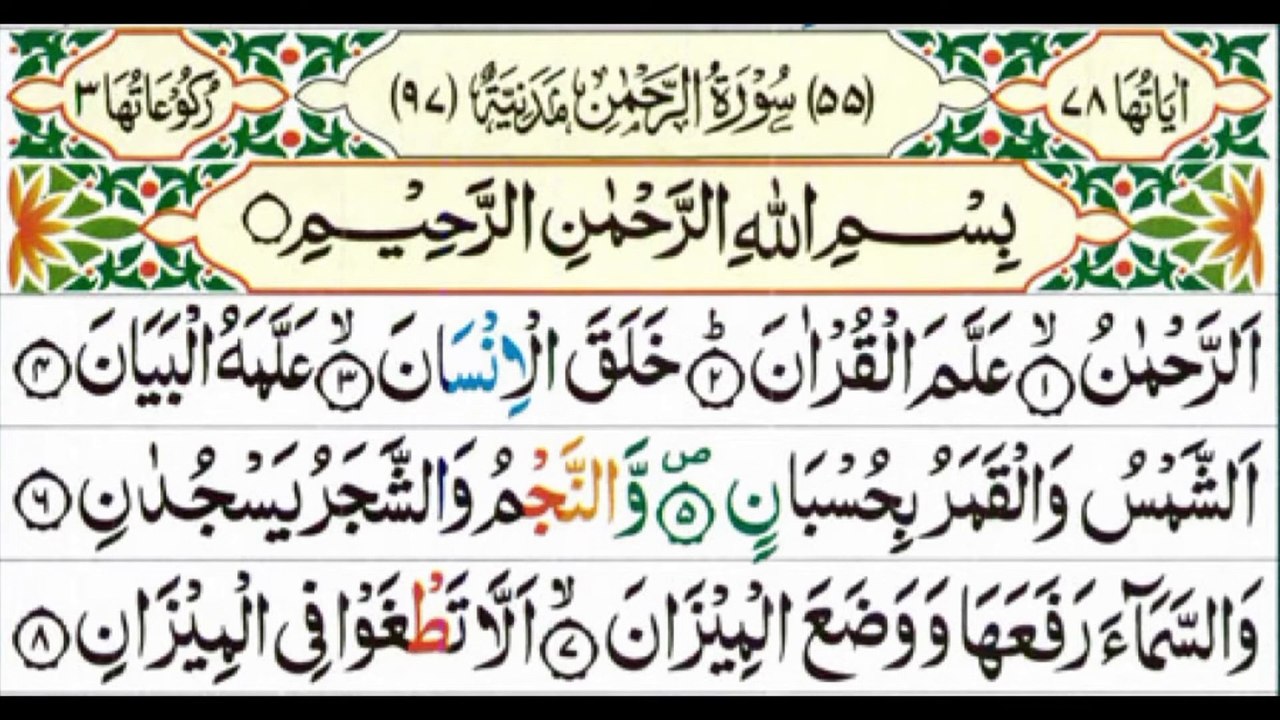 اٰيَاتُهَا ٧٨ (٥٥) سُوْرَةُ الرَّحْمٰنِ مَدَنِيَّةٌ (٩٧) رُكُوْعَاتُهَا ٣
بِسْمِ اللّٰهِ الرَّحْمٰنِ الرَّحِيْمِ ۝
اَلرَّحْمٰنُ ۙ﴿١﴾ عَلَّمَ الْقُرْاٰنَ ؕ﴿٢﴾ خَلَقَ الْاِنْسَانَ ۙ﴿٣﴾ عَلَّمَهُ الْبَيَانَ ﴿۴﴾
اَلشَّمْسُ وَالْقَمَرُ بِحُسْبَانٍ ۪﴿۵﴾ وَّالنَّجْمُ وَالشَّجَرُ يَسْجُدٰنِ ﴿۶﴾
وَالسَّمَآءَ رَفَعَهَا وَوَضَعَ الْمِيْزَانَ ۙ﴿٧﴾ اَلَّا تَطْغَوْا فِى الْمِيْزَانِ ﴿٨﴾